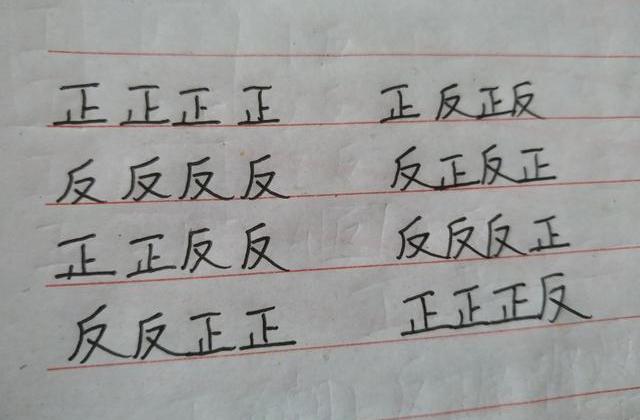 正正正正 正反正反
反反反反 反正反正
正正反反 反反反正
反反正正 正正正反